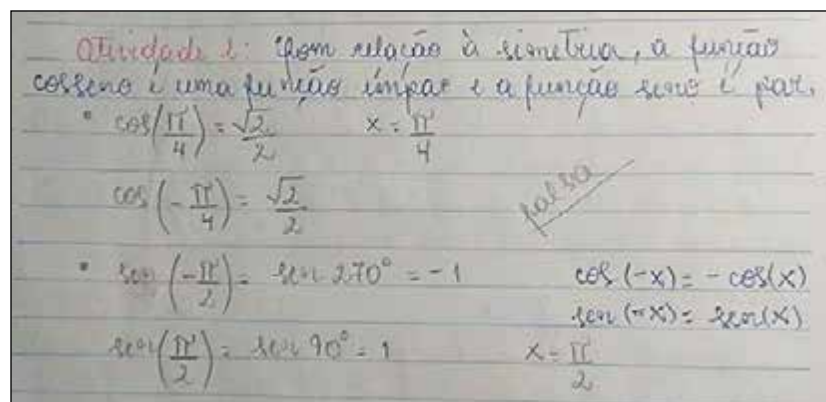 Atividade 2: Com relação à simetria, a função
cosseno é uma função ímpar e a função seno é par.
• cos(π/4) = √2/2 x = π/4
cos(-π/4) = √2/2
falsa
• sen(-π/2) = sen 270° = -1 cos(-x) = -cos(x)
sen(-x) = sen(x)
sen(π/2) = sen 90° = 1 x = π/2